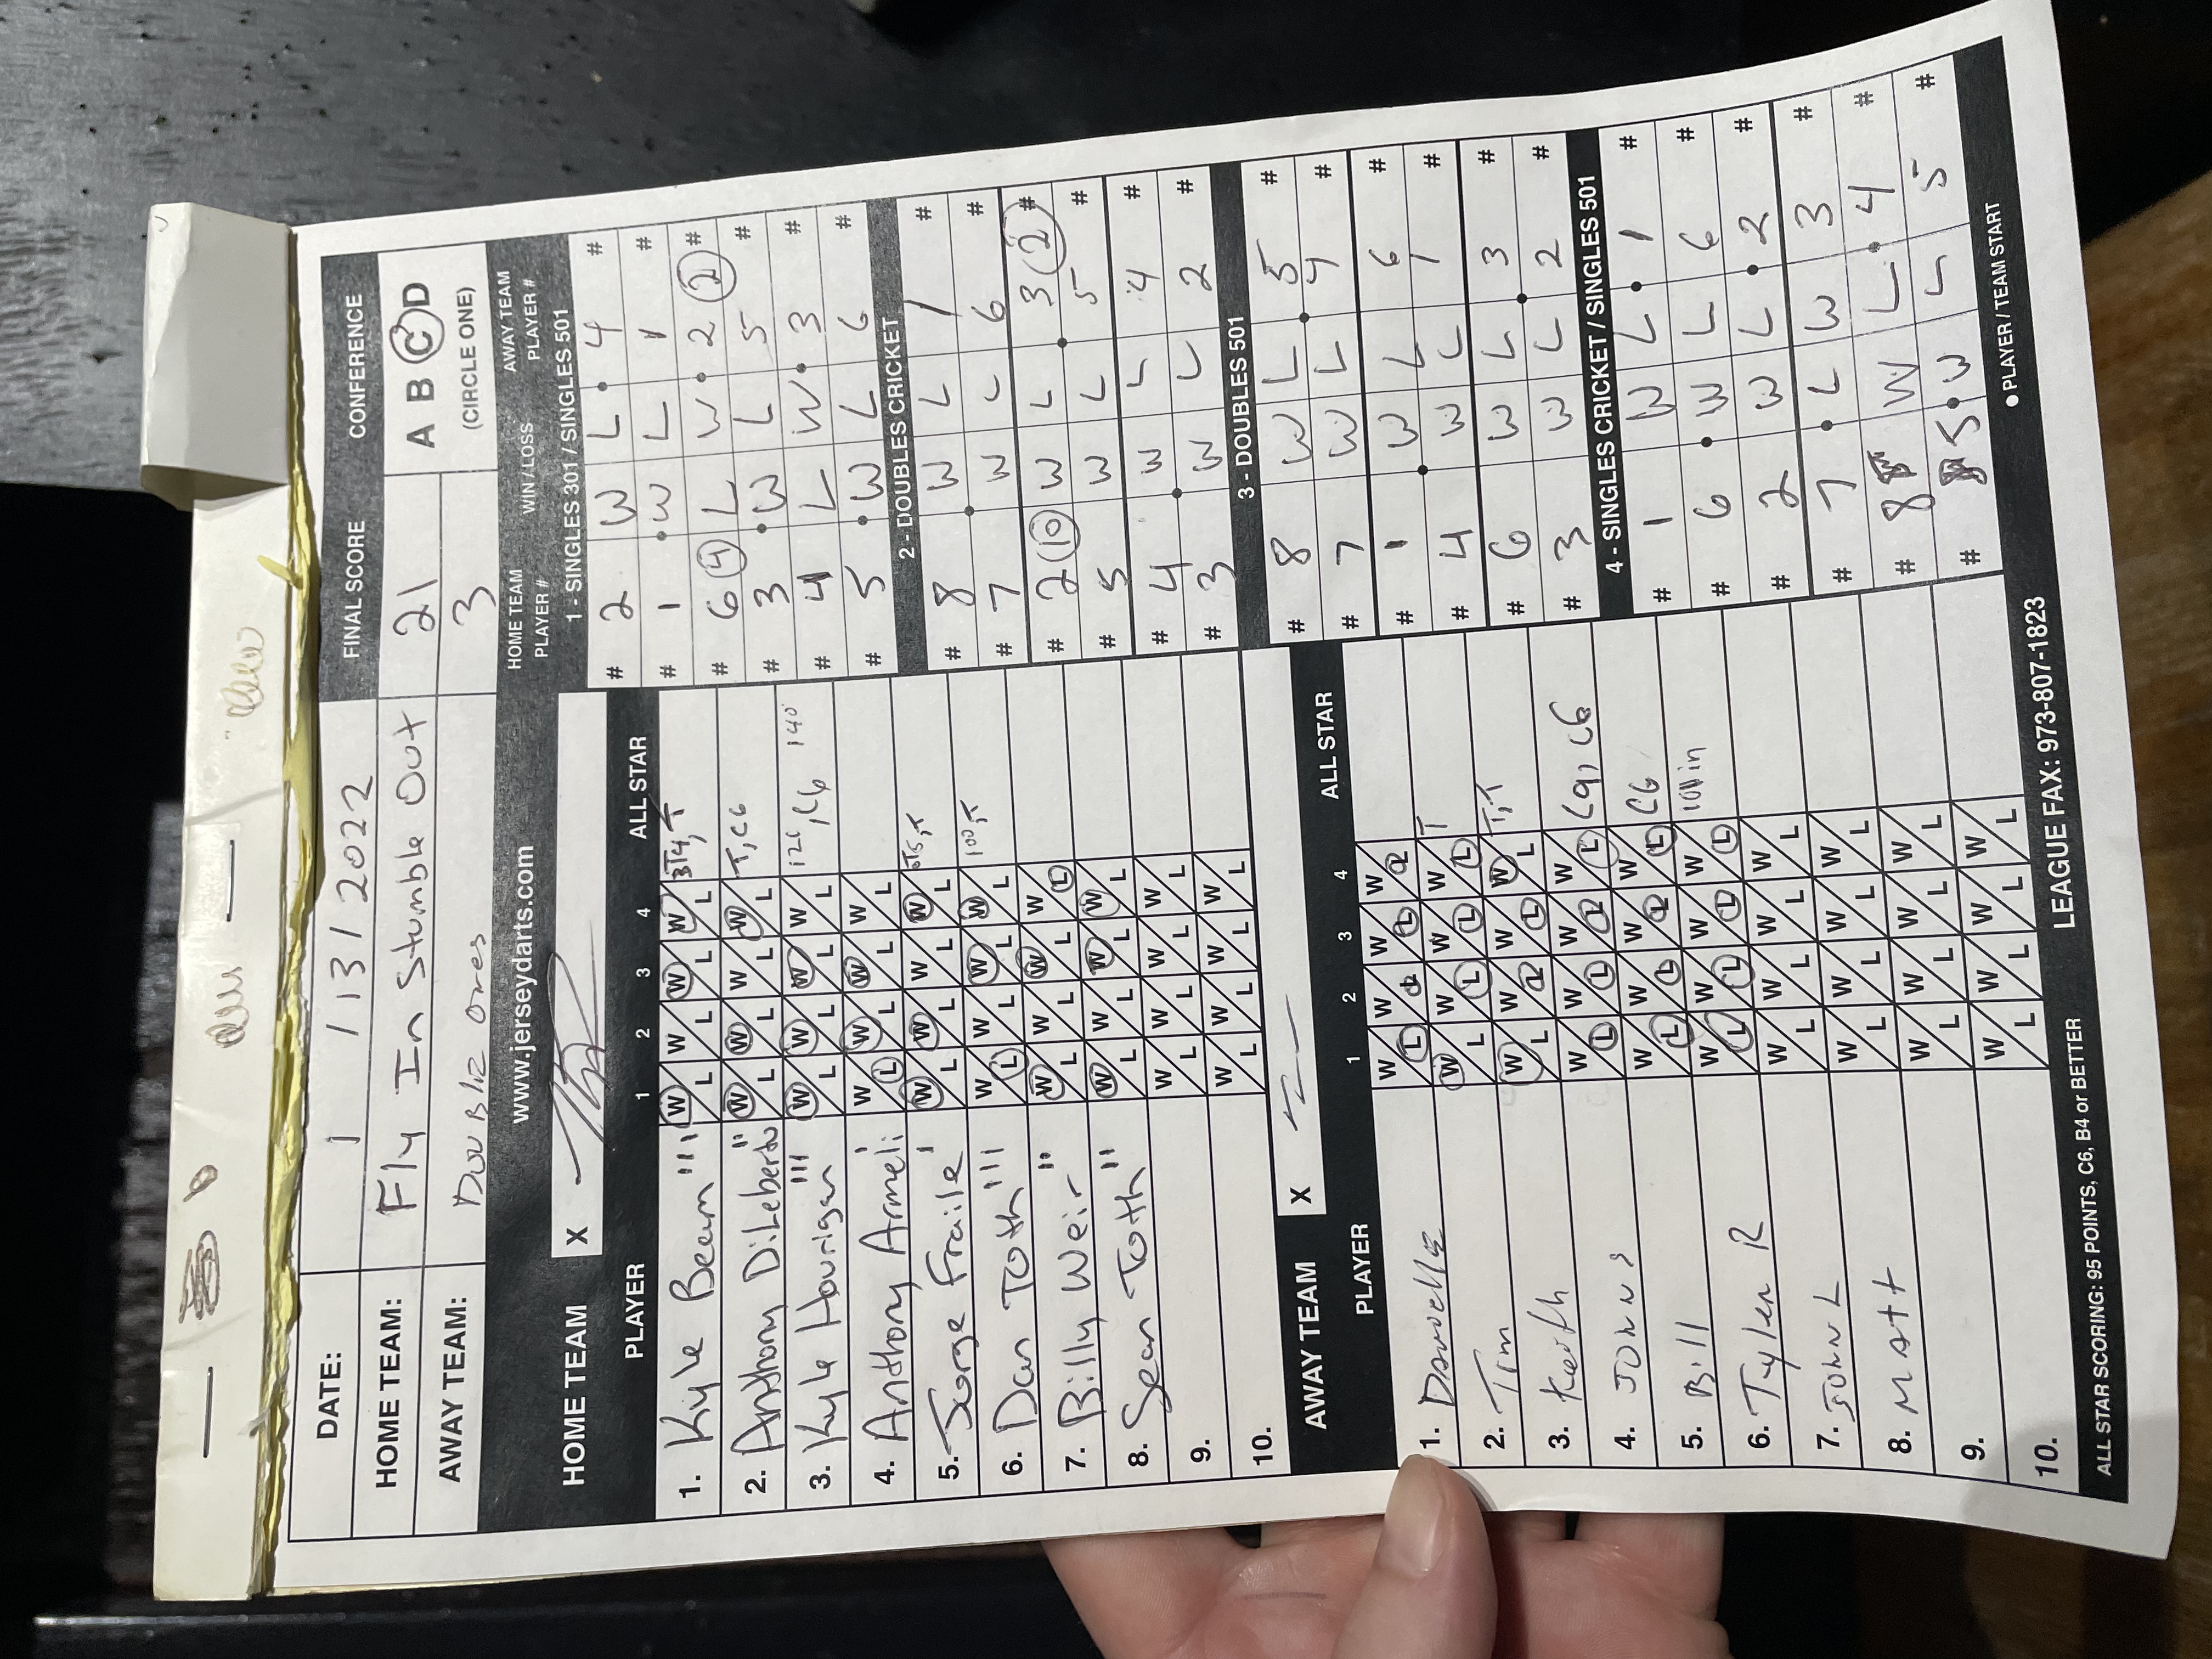 DATE: 1 / 13 / 2022 FINAL SCORE CONFERENCE
HOME TEAM: Fly In Stumble Out 21 A B C D
AWAY TEAM: DOUBLE ONES 3 (CIRCLE ONE)
www.jerseydarts.com
HOME TEAM X
PLAYER 1 2 3 4 ALL STAR
1. Kyle Beeam W/L W/L W/L W/L 3T4, T
2. Anthony DiLeberto W/L W/L W/L W/L T, C6
3. Kyle Hourigan W/L W/L W/L W/L , C6 140
4. Anthony Armeli W/L W/L W/L W/L
5. Jorge Fraile W/L W/L W/L W/L
6. Dan Toth W/L W/L W/L W/L 100, T
7. Billy Weir W/L W/L W/L W/L
8. Sean Toth W/L W/L W/L W/L
9. W/L W/L W/L W/L
10. W/L W/L W/L W/L
AWAY TEAM X
PLAYER 1 2 3 4 ALL STAR
1. Danielle W/L W/L W/L W/L
2. Tim W/L W/L W/L W/L T
3. Keith W/L W/L W/L W/L T, T
4. JOHN S W/L W/L W/L W/L C9, C6
5. Bill W/L W/L W/L W/L C6
6. Tyler R W/L W/L W/L W/L in
7. JOHN L W/L W/L W/L W/L
8. MATT W/L W/L W/L W/L
9. W/L W/L W/L W/L
10. W/L W/L W/L W/L
ALL STAR SCORING: 95 POINTS, C6, B4 or BETTER LEAGUE FAX: 973-807-1823
HOME TEAM PLAYER # WIN / LOSS AWAY TEAM PLAYER #
1 - SINGLES 301 / SINGLES 501
# 2 W L 4 #
# 1 W L 1 #
# 6 4 L W 2 2 #
# 3 W L 5 #
# 4 L W 3 #
# 5 W L 6 #
2 - DOUBLES CRICKET
# 8 W L 1 #
# 7 W L 6 #
# 2 10 W L 3 2 #
# 5 W L 5 #
# 4 W L 4 #
# 3 W L 2 #
3 - DOUBLES 501
# 8 W L 5 #
# 7 W L 4 #
# 1 W L 6 #
# 4 W L 1 #
# 6 W L 3 #
# 3 W L 2 #
4 - SINGLES CRICKET / SINGLES 501
# 1 W L 1 #
# 6 W L 6 #
# 2 W L 2 #
# 7 L W 3 #
# 8 W L 4 #
# 5 W L 5 #
● PLAYER / TEAM START